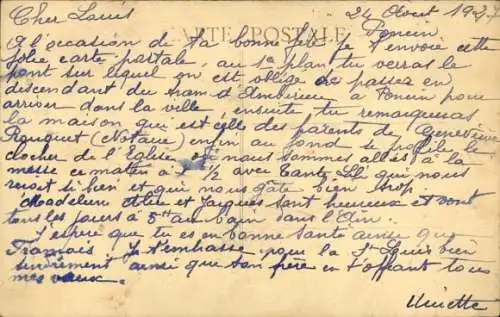 Cher Louis
CARTE POSTALE
24 Août 192
Poncin
A l'occasion de ta bonne fête je t'envoie cette
jolie carte postale, au 1er plan tu verras le
pont sur lequel on est obligé de passer en
descendant du tram d'Ambérieu à Poncin pour
arriver dans la ville, ensuite tu remarqueras
la maison qui est celle des parents de Geneviève
(Notaire) enfin au fond se profile le
clocher de l'Eglise où nous sommes allés à la
messe ce matin à 7 1/2 avec qui nous
reçoit si bien et qui nous gâte bien trop.
Madeleine Alice et Jacques sont heureux et vont
tous les jours à 5h au bain dans l'Ain.
J'espère que tu es en bonne santé ainsi que
François Je t'embrasse pour la St Louis bien
tendrement ainsi que ton père en t'offrant tous
mes vœux.